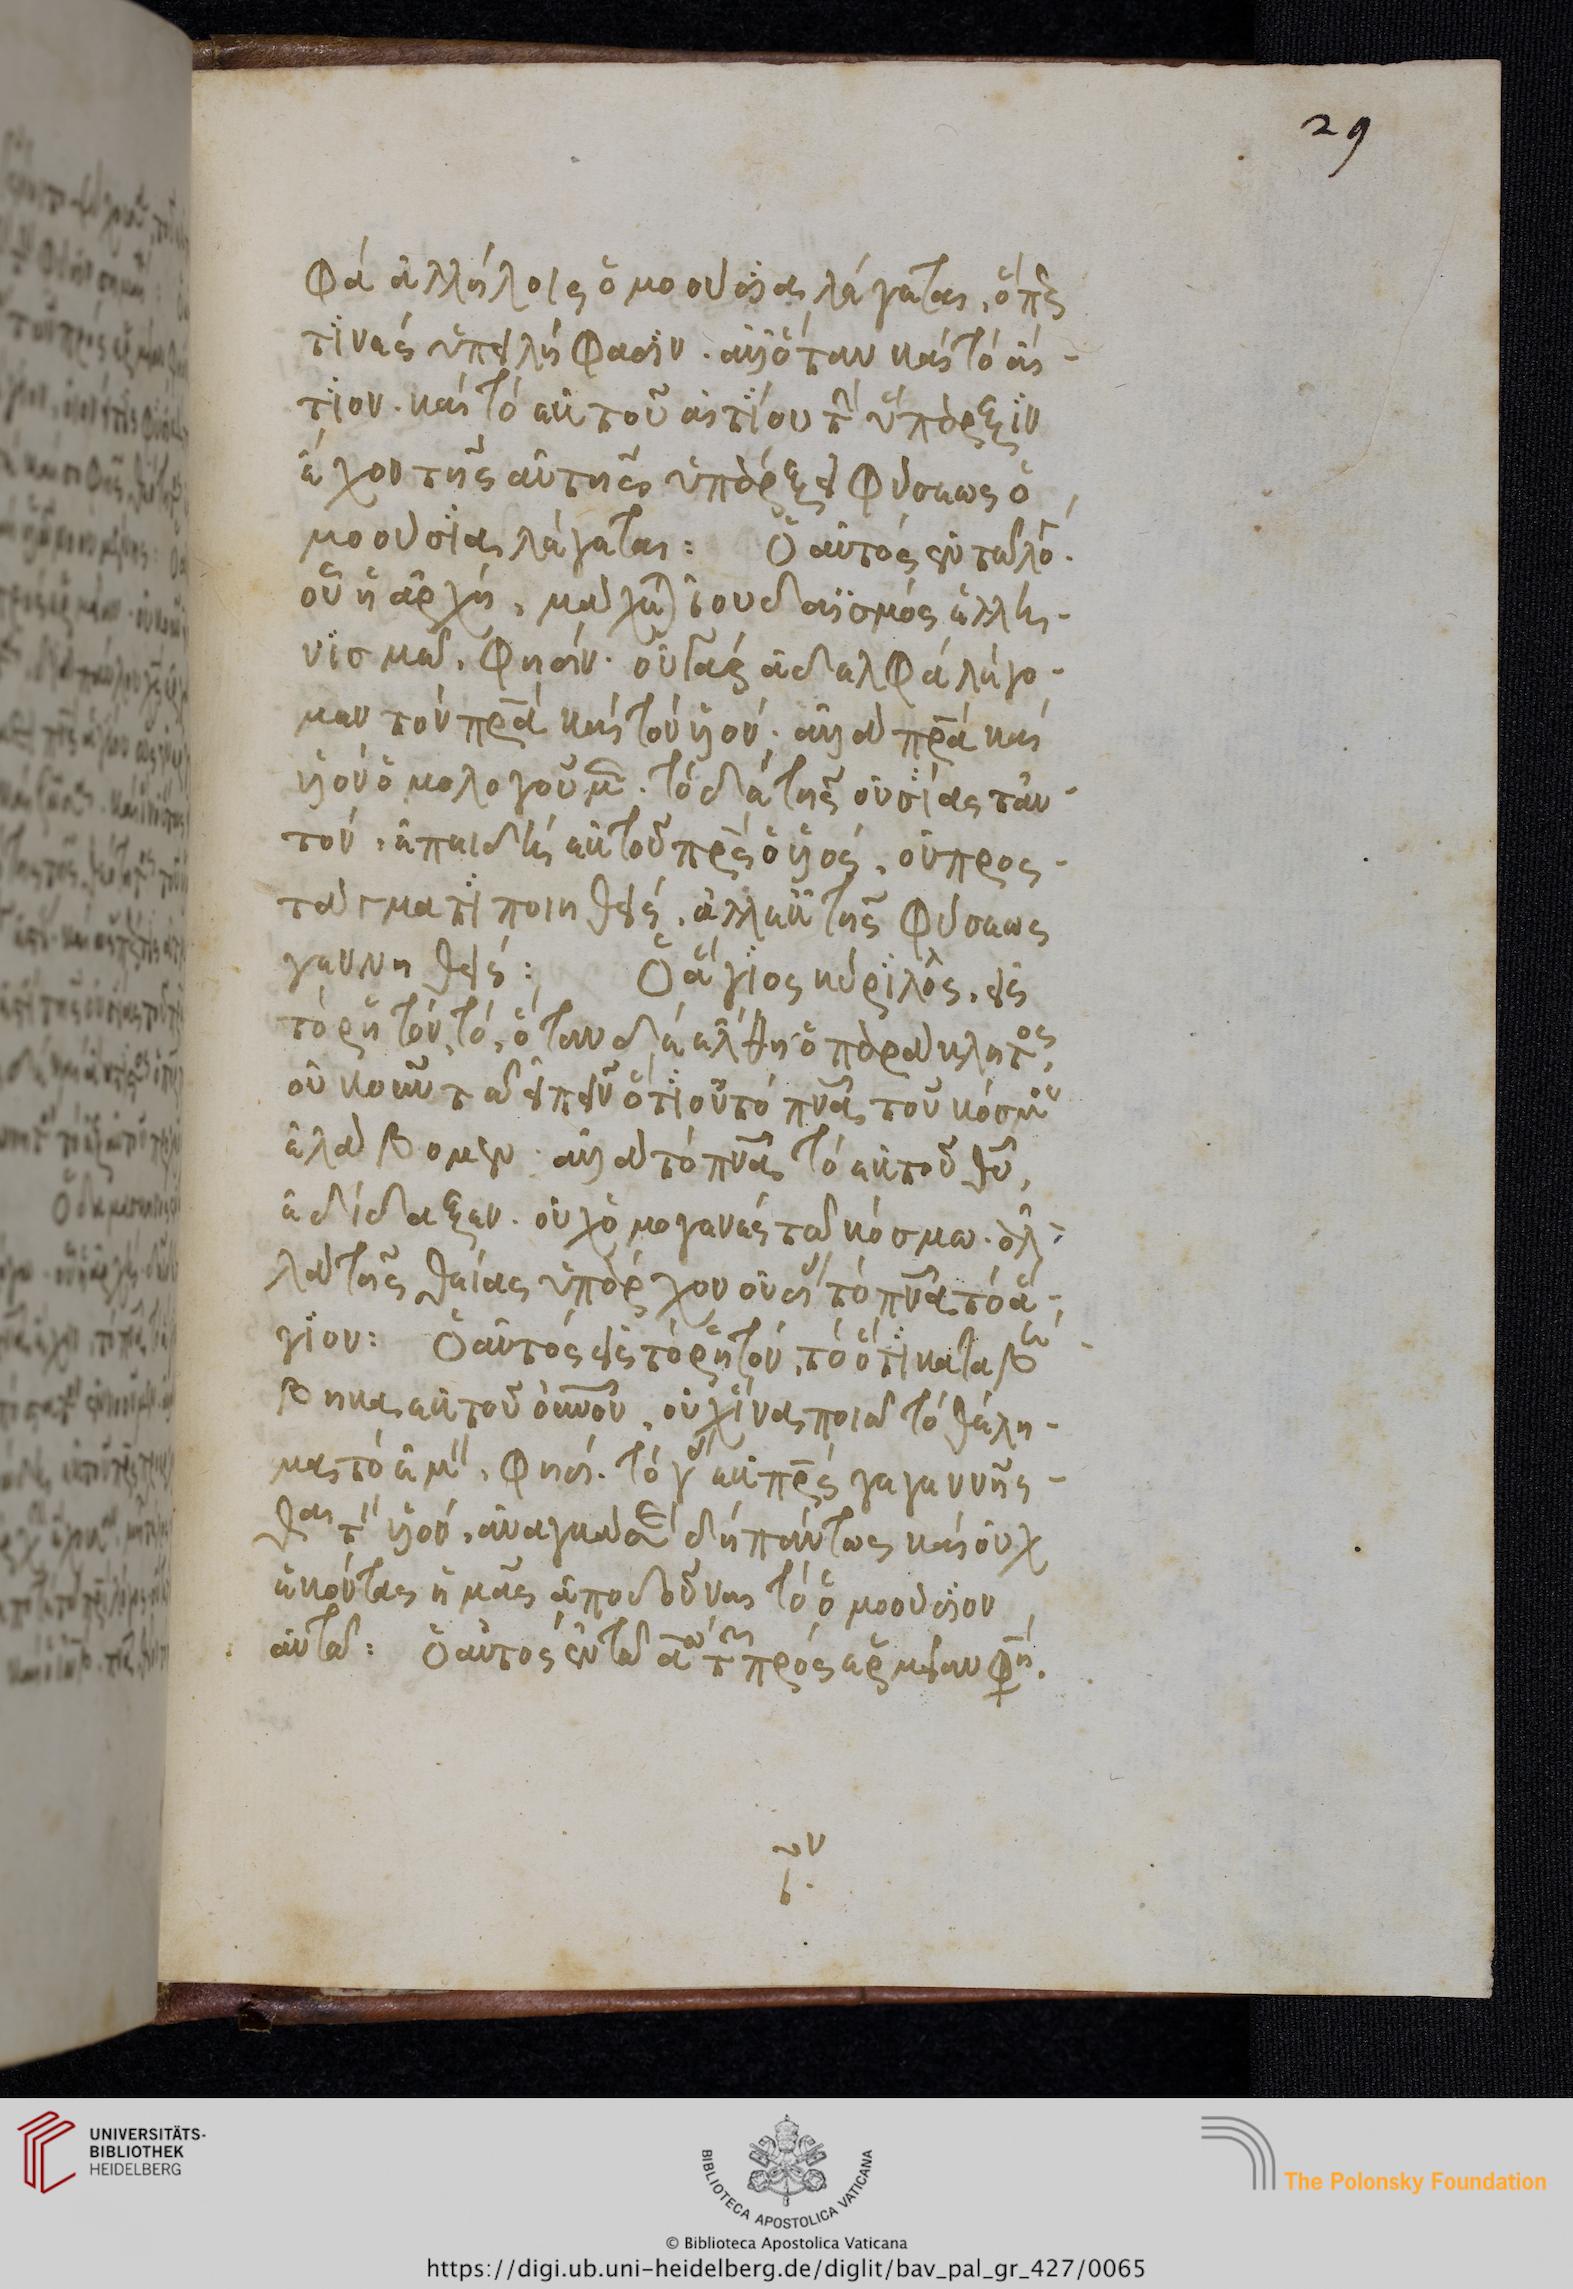 29
φὰ ἀλλήλοις ὁμοούσια λέγεται, ὅπερ
τινὲς ὑπειλήφασιν. ἀλλ' ὅταν καὶ τὸ αἴ-
τιον. καὶ τὸ ἐκ τοῦ αἰτίου τὴν ὕπαρξιν
ἔχον τῆς αὐτῆς ὑπάρξει φύσεως ὁ
μοούσια λέγεται: Ὁ αὐτὸς ἐν τῷ λό.
οὗ ἡ ἀρχὴ, ἰουδαϊσμὸς ἑλλη-
νισμῷ, φησίν. οὔτε ἀδελφὰ λέγο-
μεν τὸν πρα καὶ τὸν υἱόν. ἀλλὰ πρα καὶ
υἱὸν ὁμολογοῦμεν. τὸ δὲ τῆς οὐσίας ταυ-
τόν, ἐπειδὴ ἐκ τοῦ πρς ὁ υἱός, οὐ προς-
τάγματι ποιηθεὶς, ἀλλ' ἐκ τῆς φύσεως
γεννηθείς: Ὁ ἅγιος κύριλος, εἰς
τὸ ρητὸν, τὸ, ὅταν δὲ ἔλθη ὁ παράκλητος,
οὐ τῷ εἰπεῖν ὅτι οὐ τὸ πνα τοῦ κόσμου
ἐλάβομεν. ἀλλὰ τὸ πνα τὸ ἐκ τοῦ θυ,
ἐδίδαξεν. οὐχ ὁμογενὲς τῷ κόσμω. ἀλ-
λὰ τῆς θείας ὑπάρχον οὐσίας τὸ πνα τὸ ἅ-
γιον: Ὁ αὐτὸς εἰς τὸ ρητὸν, τὸ ὅτι καταβέ-
βηκα ἐκ τοῦ ουνου, οὐχ ἵνα ποιῶ τὸ θέλη-
μα τὸ ἐμὸν, φησί. τὸ γὰρ ἐκ πρς γεγεννῆς-
θαι τὸν υἱὸν, ἀναγκάσει δὴ πάντως καὶ οὐχ
ἑκόντας ἡμᾶς ἀποδοῦναι τὸ ὁμοούσιον
αὐτῷ: Ὁ αὐτὸς ἐν τῷ α τῶν πρὸς ἑρμείαν φη.
UNIVERSITÄTS-
BIBLIOTHEK
HEIDELBERG
BIBLIOTECA APOSTOLICA VATICANA
The Polonsky Foundation
© Biblioteca Apostolica Vaticana
https://digi.ub.uni-heidelberg.de/diglit/bav_pal_gr_427/0065